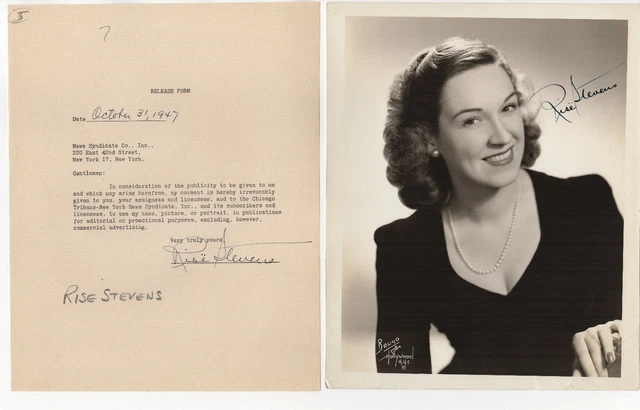 5
7
RELEASE FORM
Date October 31, 1947
News Syndicate Co., Inc.,
220 East 42nd Street,
New York 17, New York.
Gentlemen:
In consideration of the publicity to be given to me
and which may arise herefrom, my consent is hereby irrevocably
given to you, your assignees and licensees, and to the Chicago
Tribune-New York News Syndicate, Inc., and its subscribers and
licensees, to use my name, picture, or portrait, in publications
for editorial or promotional purposes, excluding, however,
commercial advertising.
Very truly yours,
Risë Stevens
RISE STEVENS
Risë Stevens
Bruno
of
Hollywood